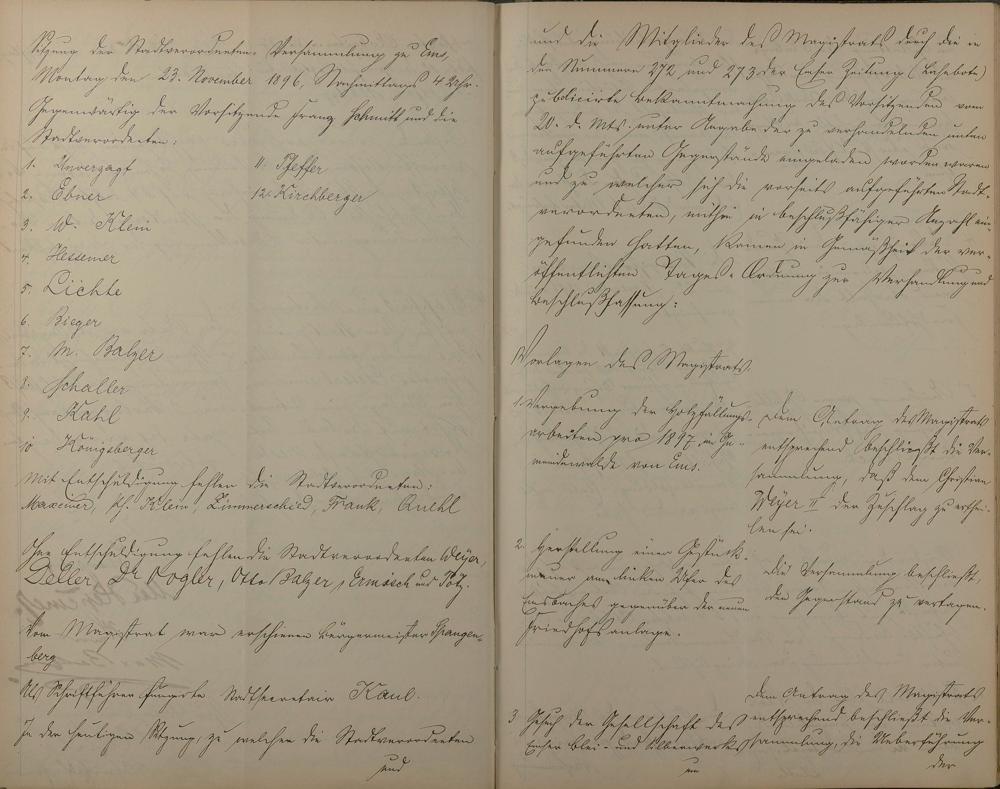 Sitzung der Stadtverordneten-Versammlung zu Ems,
Montag den 23. November 1896, Nachmittags 4 Uhr.
Gegenwärtig der Vorsitzende Franz Schmitt und die
Stadtverordneten:
1. Unverzagt
2. Ebner
3. W. Klein
4. Hessemer
5. Lichte
6. Bieger
7. M. Balzer
8. Schaller
9. Kahl
10 Königsberger
11. Pfeffer
12. Kirchberger
Mit Entschuldigung fehlen die Stadtverordneten:
Maxeiner, Klein, Zimmerschied, Frank, Ruehl
Ohne Entschuldigung fehlen die Stadtverordneten Weyer,
Deller, Dr Vogler, Otto Balzer, Ermisch und Pötz.
Vom Magistrat war erschienen Bürgermeister Spangen-
berg
Als Schriftführer fungirte Stadtsecretair Kaul.
In der heutigen Sitzung, zu welcher die Stadtverordneten
und
und die Mitglieder des Magistrats durch die in
den Nummern 272 und 273 der Emser Zeitung (Lahnbote)
publicirte Bekanntmachung des Vorsitzenden vom
20. d. Mts. unter Angabe der zu verhandelnden unten
aufgeführten Gegenstände eingeladen worden waren
und zu welcher sich die vorseits aufgeführten Stadt-
verordneten, mithin in beschlußfähiger Anzahl ein-
gefunden hatten, kamen in Gemäßheit der ver-
öffentlichten Tages-Ordnung zur Verhandlung und
Beschlußfassung:
Vorlagen des Magistrats.
1. Vergebung der Holzfällungs-
arbeiten pro 1897 im Ge-
meindewalde von Ems.
Dem Antrag des Magistrats
entsprechend beschließt die Ver-
sammlung, daß dem Christian
Weyer II der Zuschlag zu erthei-
len sei.
2. Herstellung einer Gestück-
mauer am linken Ufer des
Emsbaches gegenüber der neuen
Friedhofsanlage.
Die Versammlung beschließt,
den Gegenstand zu vertagen.
3 Gesuch der Gesellschaft des
Emser Blei- und Silberwerks
um
Dem Antrag des Magistrats
entsprechend beschließt die Ver-
sammlung, die Ueberführung
der